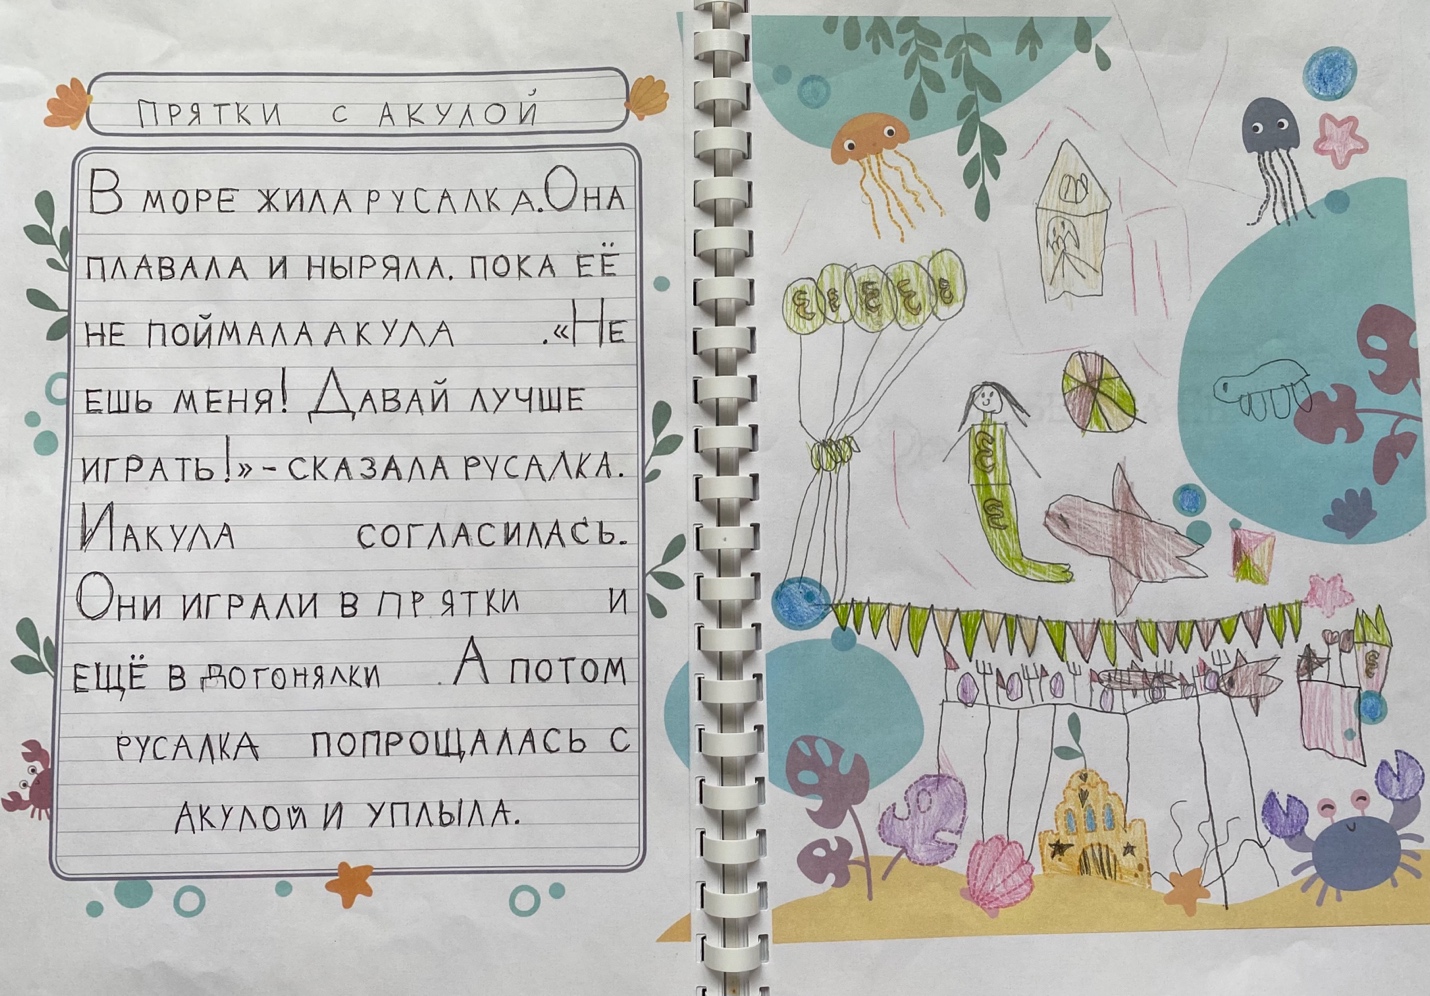 ПРЯТКИ С АКУЛОЙ
В МОРЕ ЖИЛА РУСАЛКА. ОНА
ПЛАВАЛА И НЫРЯЛА. ПОКА ЕЁ
НЕ ПОЙМАЛА АКУЛА . «НЕ
ЕШЬ МЕНЯ! ДАВАЙ ЛУЧШЕ
ИГРАТЬ!» - СКАЗАЛА РУСАЛКА.
И АКУЛА СОГЛАСИЛАСЬ.
ОНИ ИГРАЛИ В ПРЯТКИ И
ЕЩЁ В ДОГОНЯЛКИ . А ПОТОМ
РУСАЛКА ПОПРОЩАЛАСЬ С
АКУЛОЙ И УПЛЫЛА.